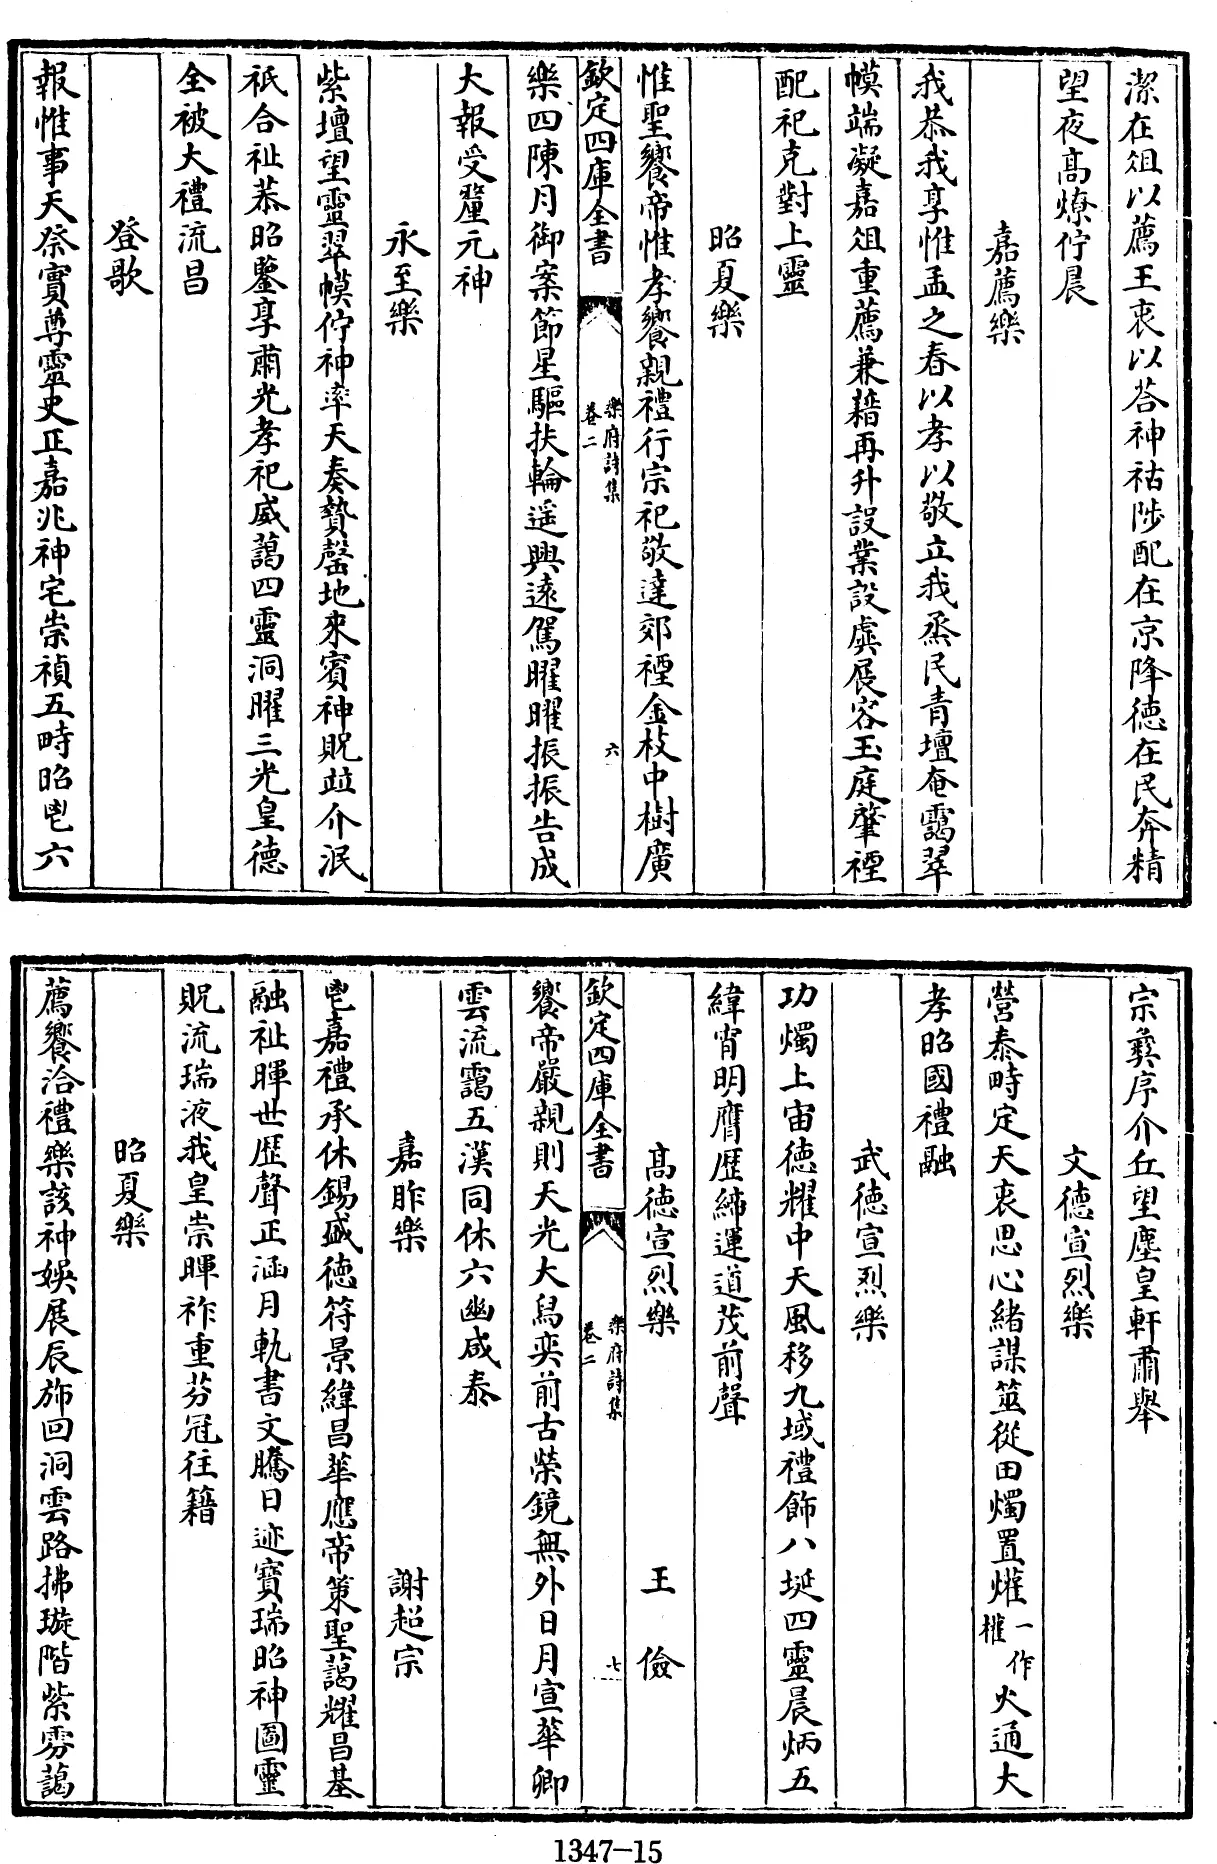 潔在俎以薦王衷以荅神祜陟配在京降徳在民奔精
望夜髙燎佇晨
嘉薦樂
我恭我享惟孟之春以孝以敬立我烝民青壇奄靄翠
幙端凝嘉俎重薦兼籍再升設業設虡展容玉庭肇禋
配祀克對上靈
昭夏樂
惟聖饗帝惟孝饗親禮行宗祀敬達郊禋金枝中樹廣
欽定四庫全書
樂府詩集
卷二
六
樂四陳月御案節星驅扶輪遥興遠駕曜曜振振告成
大報受釐元神
永至樂
紫壇望靈翠幙佇神率天奏贄罄地來賓神貺竝介泯
祇合祉恭昭鑒享肅光孝祀威藹四靈洞曜三光皇徳
全被大禮流昌
登歌
報惟事天祭實尊靈史正嘉兆神宅崇禎五畤昭鬯六
宗彝序介丘望塵皇軒肅舉
文徳宣烈樂
營泰畤定天衷思心緒謀筮從田燭置爟一作權火通大
孝昭國禮融
武徳宣烈樂
功燭上宙徳耀中天風移九域禮飾八埏四靈晨炳五
緯宵明膺歴締運道茂前聲
髙徳宣烈樂　王儉
欽定四庫全書
樂府詩集
卷二
七
饗帝嚴親則天光大舄奕前古榮鏡無外日月宣華卿
雲流靄五漢同休六幽咸泰
嘉胙樂　謝超宗
鬯嘉禮承休錫盛徳符景緯昌華應帝策聖藹耀昌基
融祉暉世歴聲正涵月軌書文騰日迹寳瑞昭神圖靈
貺流瑞液我皇崇暉祚重芬冠往籍
昭夏樂
薦饗洽禮樂該神娛展辰斾回洞雲路拂璇階紫雰藹
1347-15